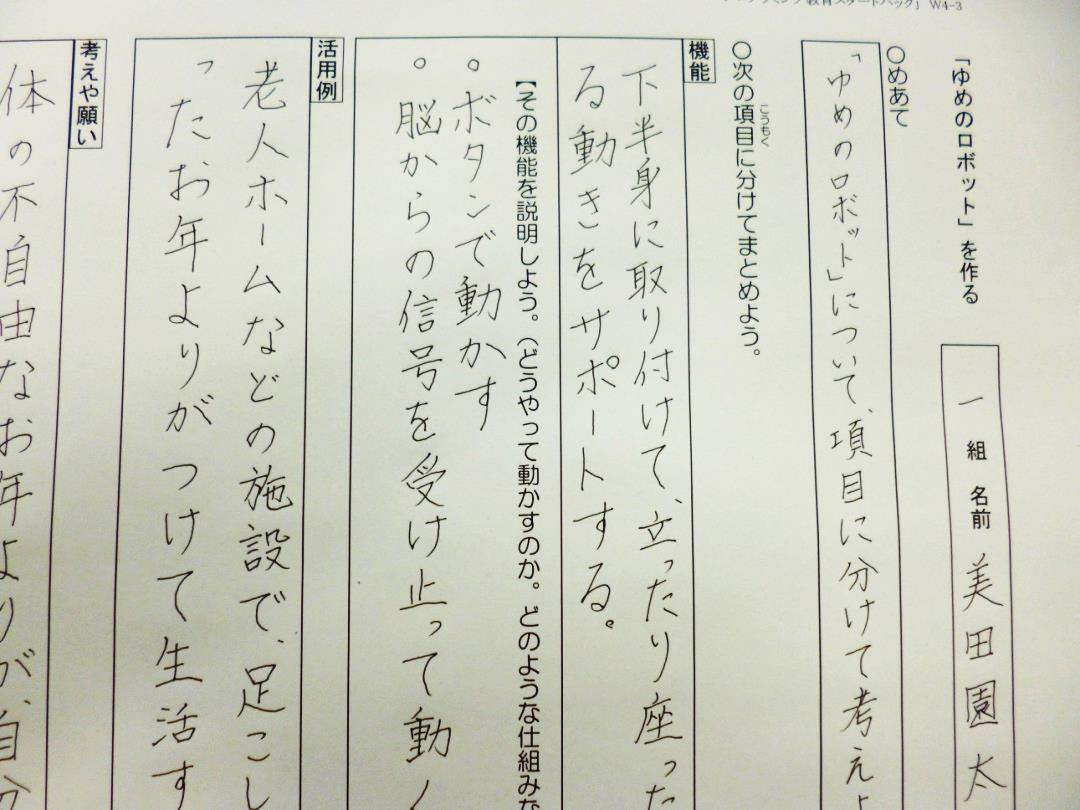 プログラミング教育スタートパック」 W4-3
「ゆめのロボット」を作る
一 組 名前 美田園太
○めあて
「ゆめのロボット」について、項目に分けて考えよ
○次の項目に分けてまとめよう。
こうもく
機能
下半身に取り付けて、立ったり座った
る動きをサポートする。
【その機能を説明しよう。(どうやって動かすのか。どのような仕組みな
。ボタンで動かす
。脳からの信号を受け止って動く
活用例
老人ホームなどの施設で、足こし
ったお年よりがつけて生活す
考えや願い
体の不自由なお年よりが、自分